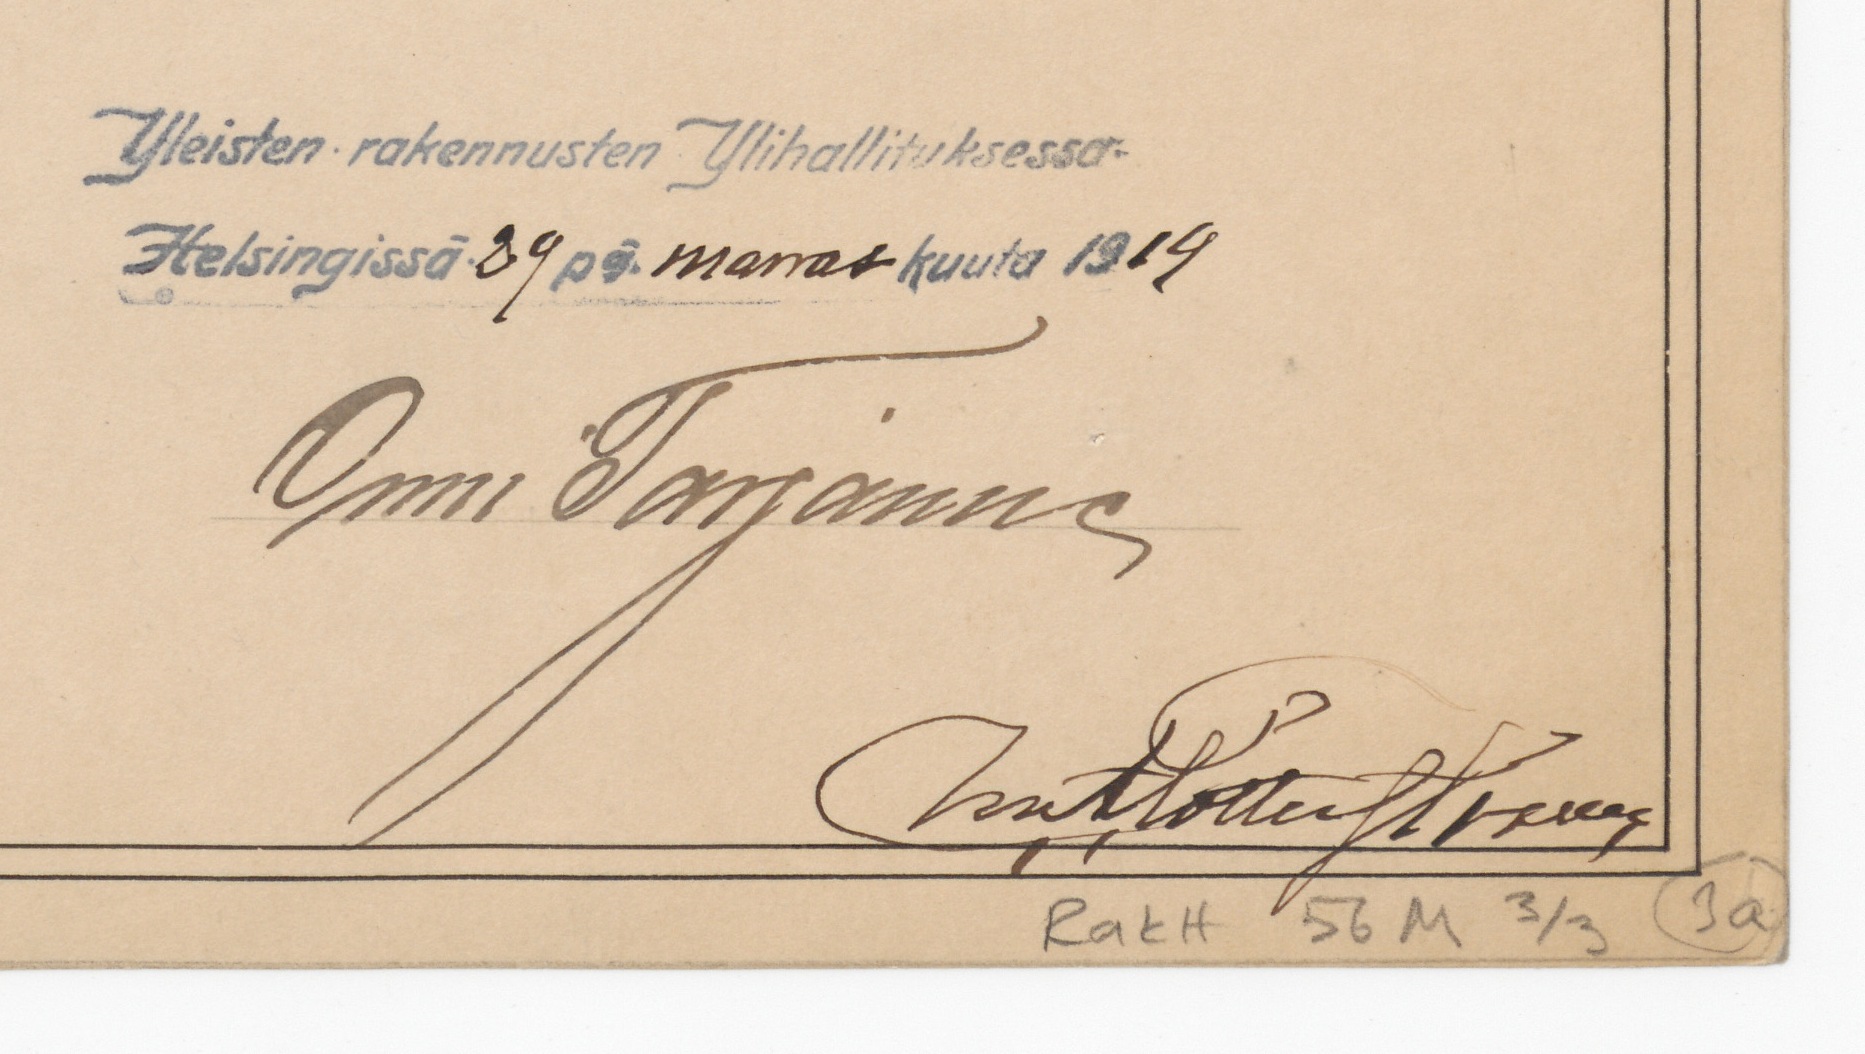 Yleisten rakennusten Ylihallituksessa.
Helsingissä 29 pä. marraskuuta 1919
Onni Tarjanne
RakH 56 M 3/3 3a